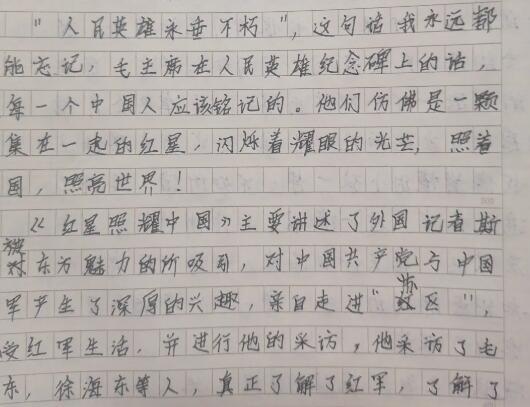 "人民英雄永垂不朽"，这句话我永远都
能忘记，毛主席在人民英雄纪念碑上的话，
每一个中国人应该铭记的。他们仿佛是一颗
集在一起的红星，闪烁着耀眼的光芒，照着
国，照亮世界！
《红星照耀中国》主要讲述了外国记者斯
被东方魅力的所吸引，对中国共产党与中国
军产生了深厚的兴趣，亲自走进"区"，
受红军生活，并进行他的采访，他采访了毛
东，徐海东等人，真正了解了红军，了解了